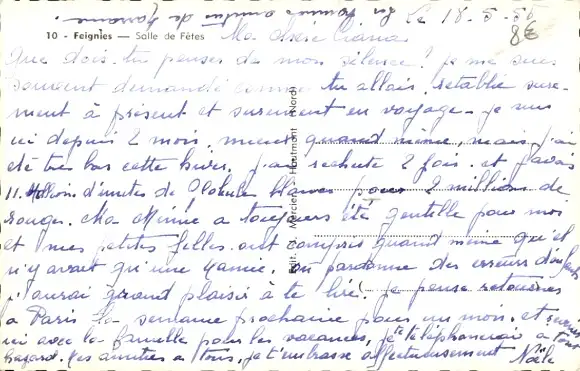 Le 18.5.
8€
10 - Feignies — Salle de Fêtes
Ma chère
Que dois-tu penser de mon silence? je me suis
souvent demandé comme tu allais, rétablie sure-
ment à présent et surement en voyage. je suis
ici depuis 2 mois, mieux quand même, mais j'ai
été très bas cette hiver, j'ai rechuté 2 fois. et j'avais
11 Millions de Globule blancs pour 2 millions de
rouge. Ma a toujours été gentille pour moi
et mes petites filles ont compris quand même qu'il
n'y avait qu'une Mamie. on pardonne des erreurs
j'aurai grand plaisir à te lire. je pense retourner
à Paris la semaine prochaine pour un mois. et
ici avec la famille pour les vacances, je te téléphonerai à tout
hazard. mes amitiés à tous, je t'embrasse affectueusement
Edit. D. Mercier, Hautmont (Nord)